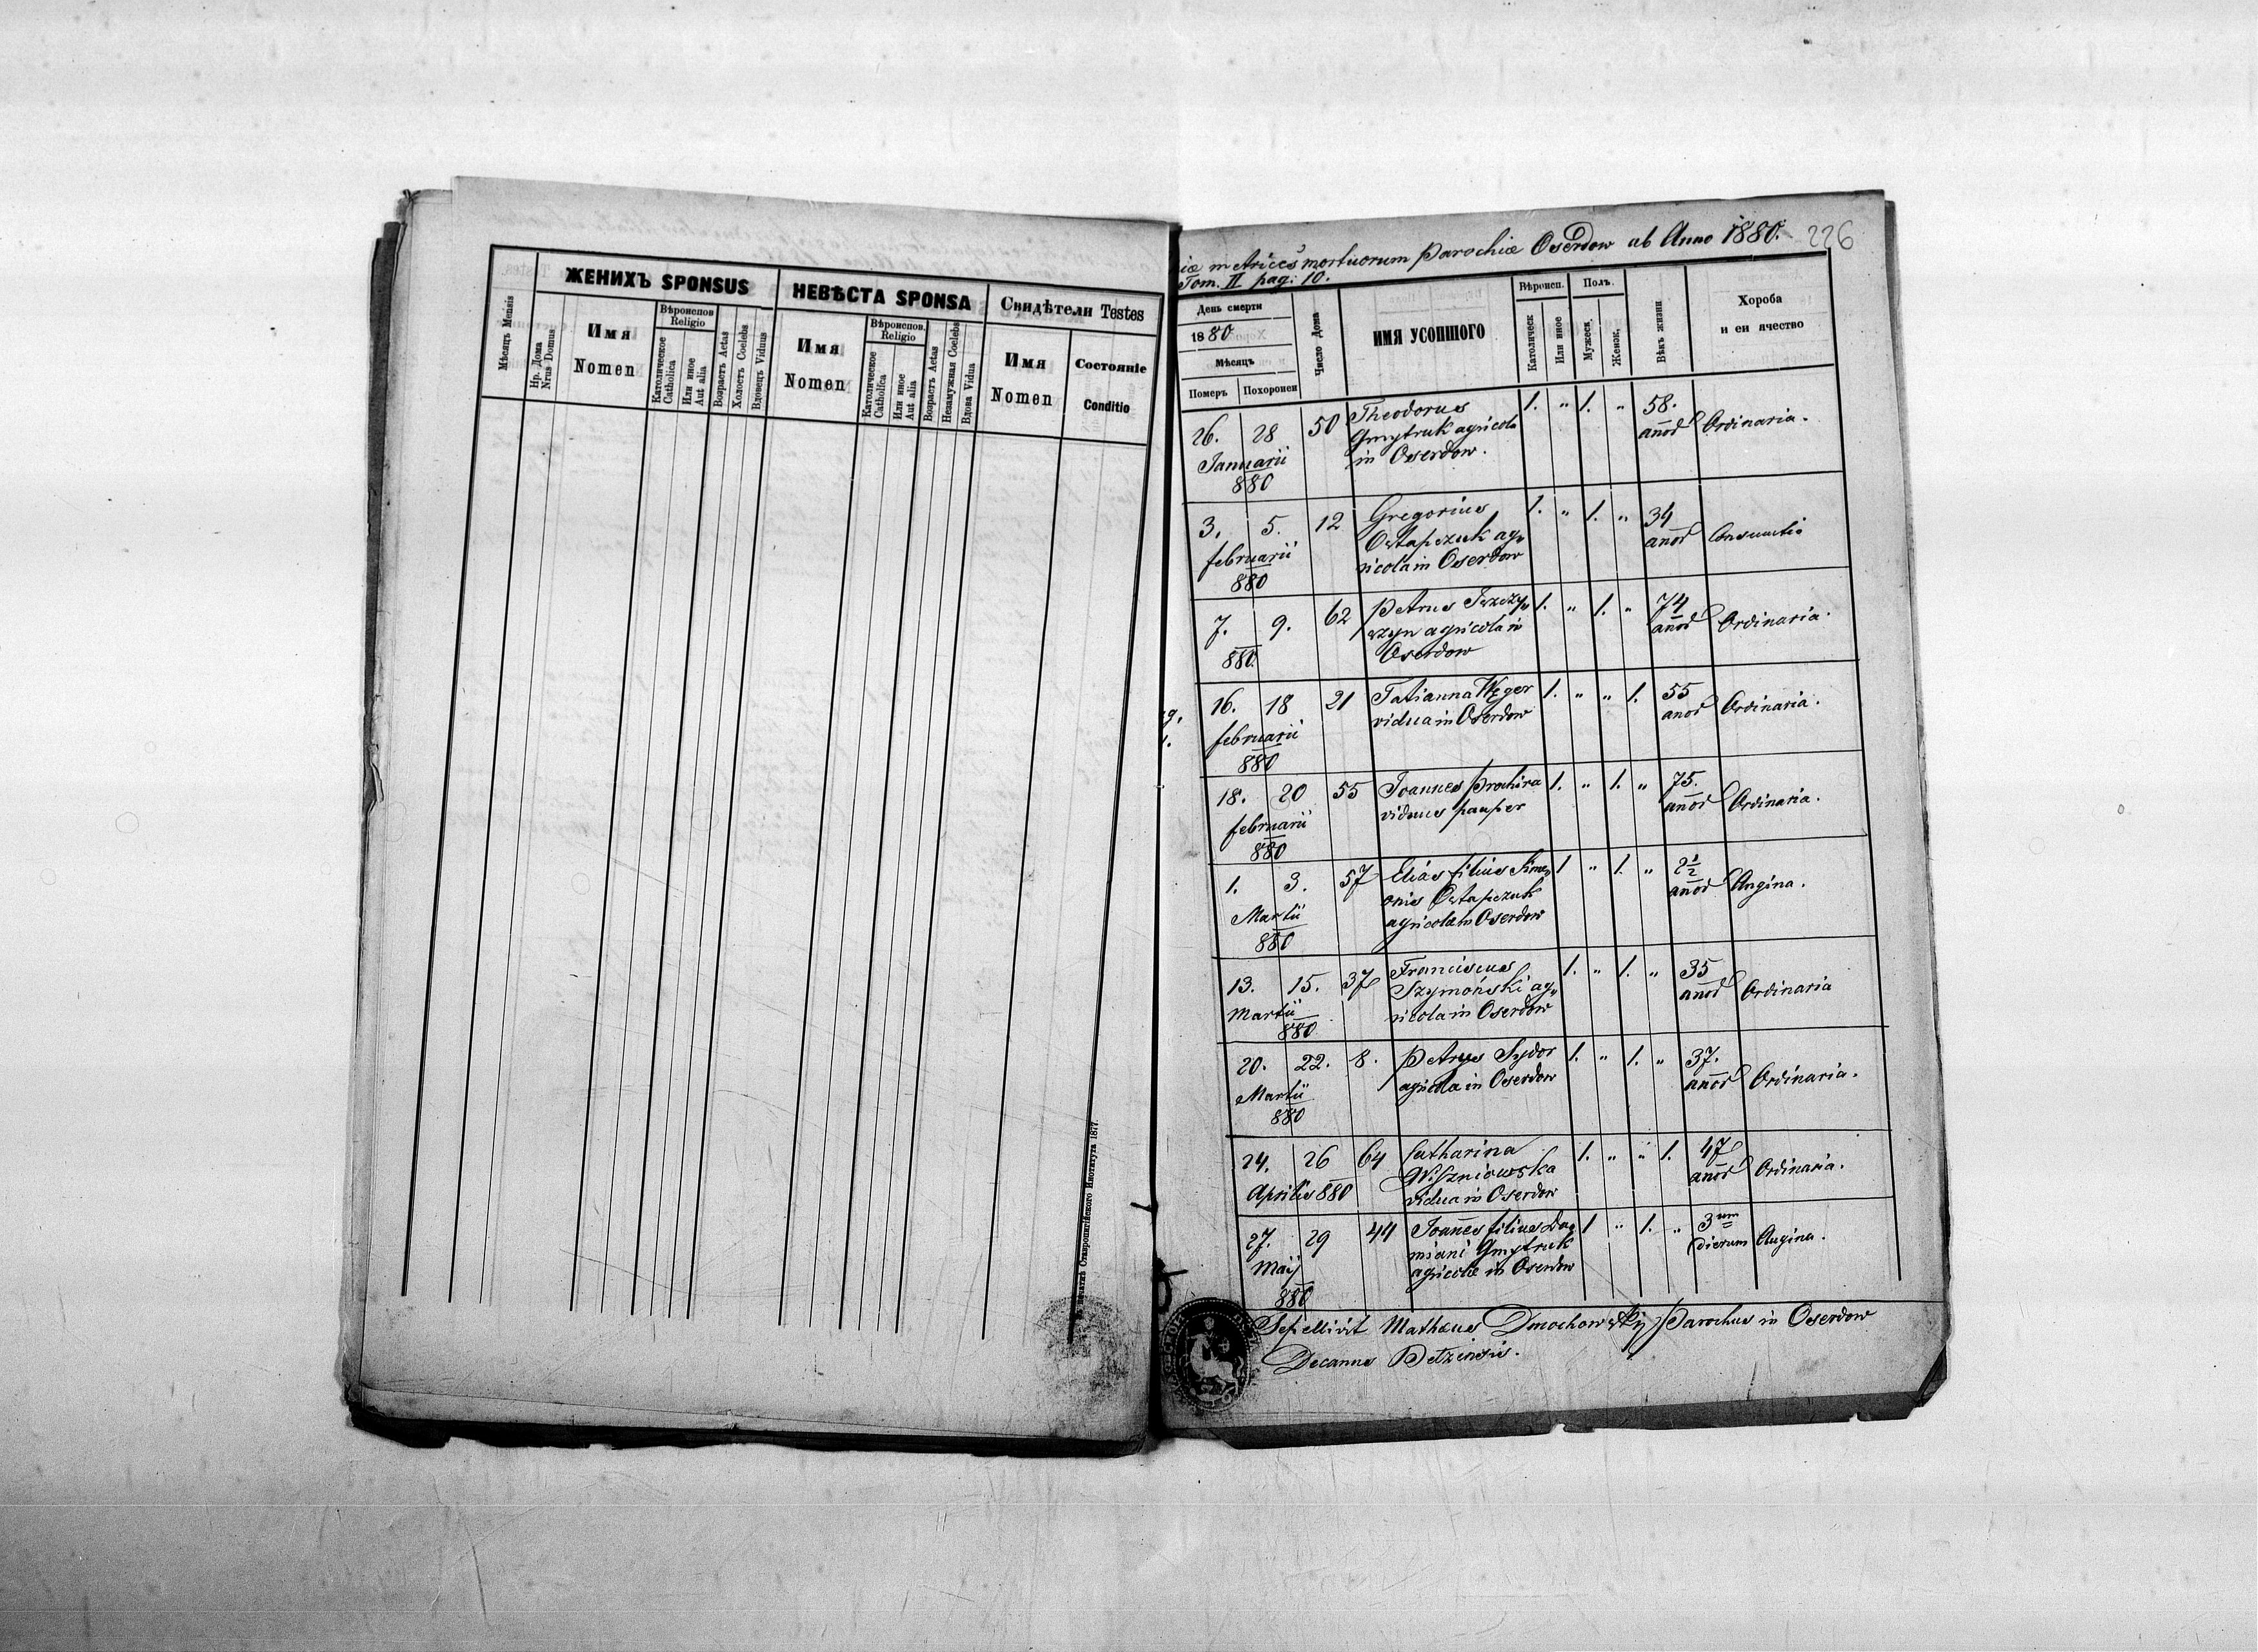 ЖЕНИХЪ SPONSUS
НЕВѢСТА SPONSA
Свидѣтели Testes
Мѣсяцъ Mensis
Нр. Дома
Nrus Domus
Имя
Nomen
Вѣроиспов
Religio
Католическое
Catholica
Или иное
Aut alia
Возрастъ Aetas
Холостъ Coelebs
Вдовецъ Viduus
Имя
Nomen
Вѣроиспов.
Religio
Католическое
Catholica
Или иное
Aut alia
Возрастъ Aetas
Незамужная Coelebs
Вдова Vidua
Имя
Nomen
Состояніе
Conditio
печатнѣ Ставропигійского Института 1877.
iæ metrices mortuorum Parochiæ Oserdow ab Anno 1880. 226
Tom. II pag: 10.
День смерти
1880
Мѣсяцъ
Померъ Похоронен
Число Дома
ИМЯ УСОПШОГО
Вѣроисп.
Католическ
Или иное
Полъ.
Мужеск.
Женск,
Вѣкъ жизни
Хороба
и еи ячество
26. 28 50 Theodorus 1. " 1. " 58.
Gmytruk agricola anor Ordinaria.
Januarii in Oserdow.
880
3. 5. 12 Gregorius 1. " 1. " 34
Ostapczuk ag„ anor Consumtio
februarii ricola in Oserdow
880
7. 9. 62 Petrus 1. " 1. " 74
agricola in anor Ordinaria.
880. Oserdow
16. 18 21 Tatianna Węger 1. " " 1. 55
vidua in Oserdow anor Ordinaria.
februarii
880
18. 20 55 Joannes Prochira 1. " 1. " 75.
viduus pauper anor Ordinaria.
februarii
880
1. 3. 57 Elias filius Sime„ 1 " 1. " 2½
onis Ostapczuk anor Angina.
Martii agricolæ in Oserdow
880
13. 15. 37 Franciscus 1. " 1. " 35
Szymoński ag„ anor Ordinaria
Martii ricola in Oserdow
880
20. 22. 8. Petrus Sydor 1. " 1. " 37.
agricola in Oserdow anor Ordinaria.
Martii
880
24. 26 64 Catharina 1. " " 1. 47
Wiszniowska anor Ordinaria.
Aprilis 880 vidua in Oserdow
27. 29 44 Joanes filius Da„ 1 " 1. " 3um
miani Gmytruk dierum Angina.
Maij agricolæ in Oserdow
880
Sepellivit Mathæus Dmochowskij Parochus in Oserdow
Decanus Betzensis.